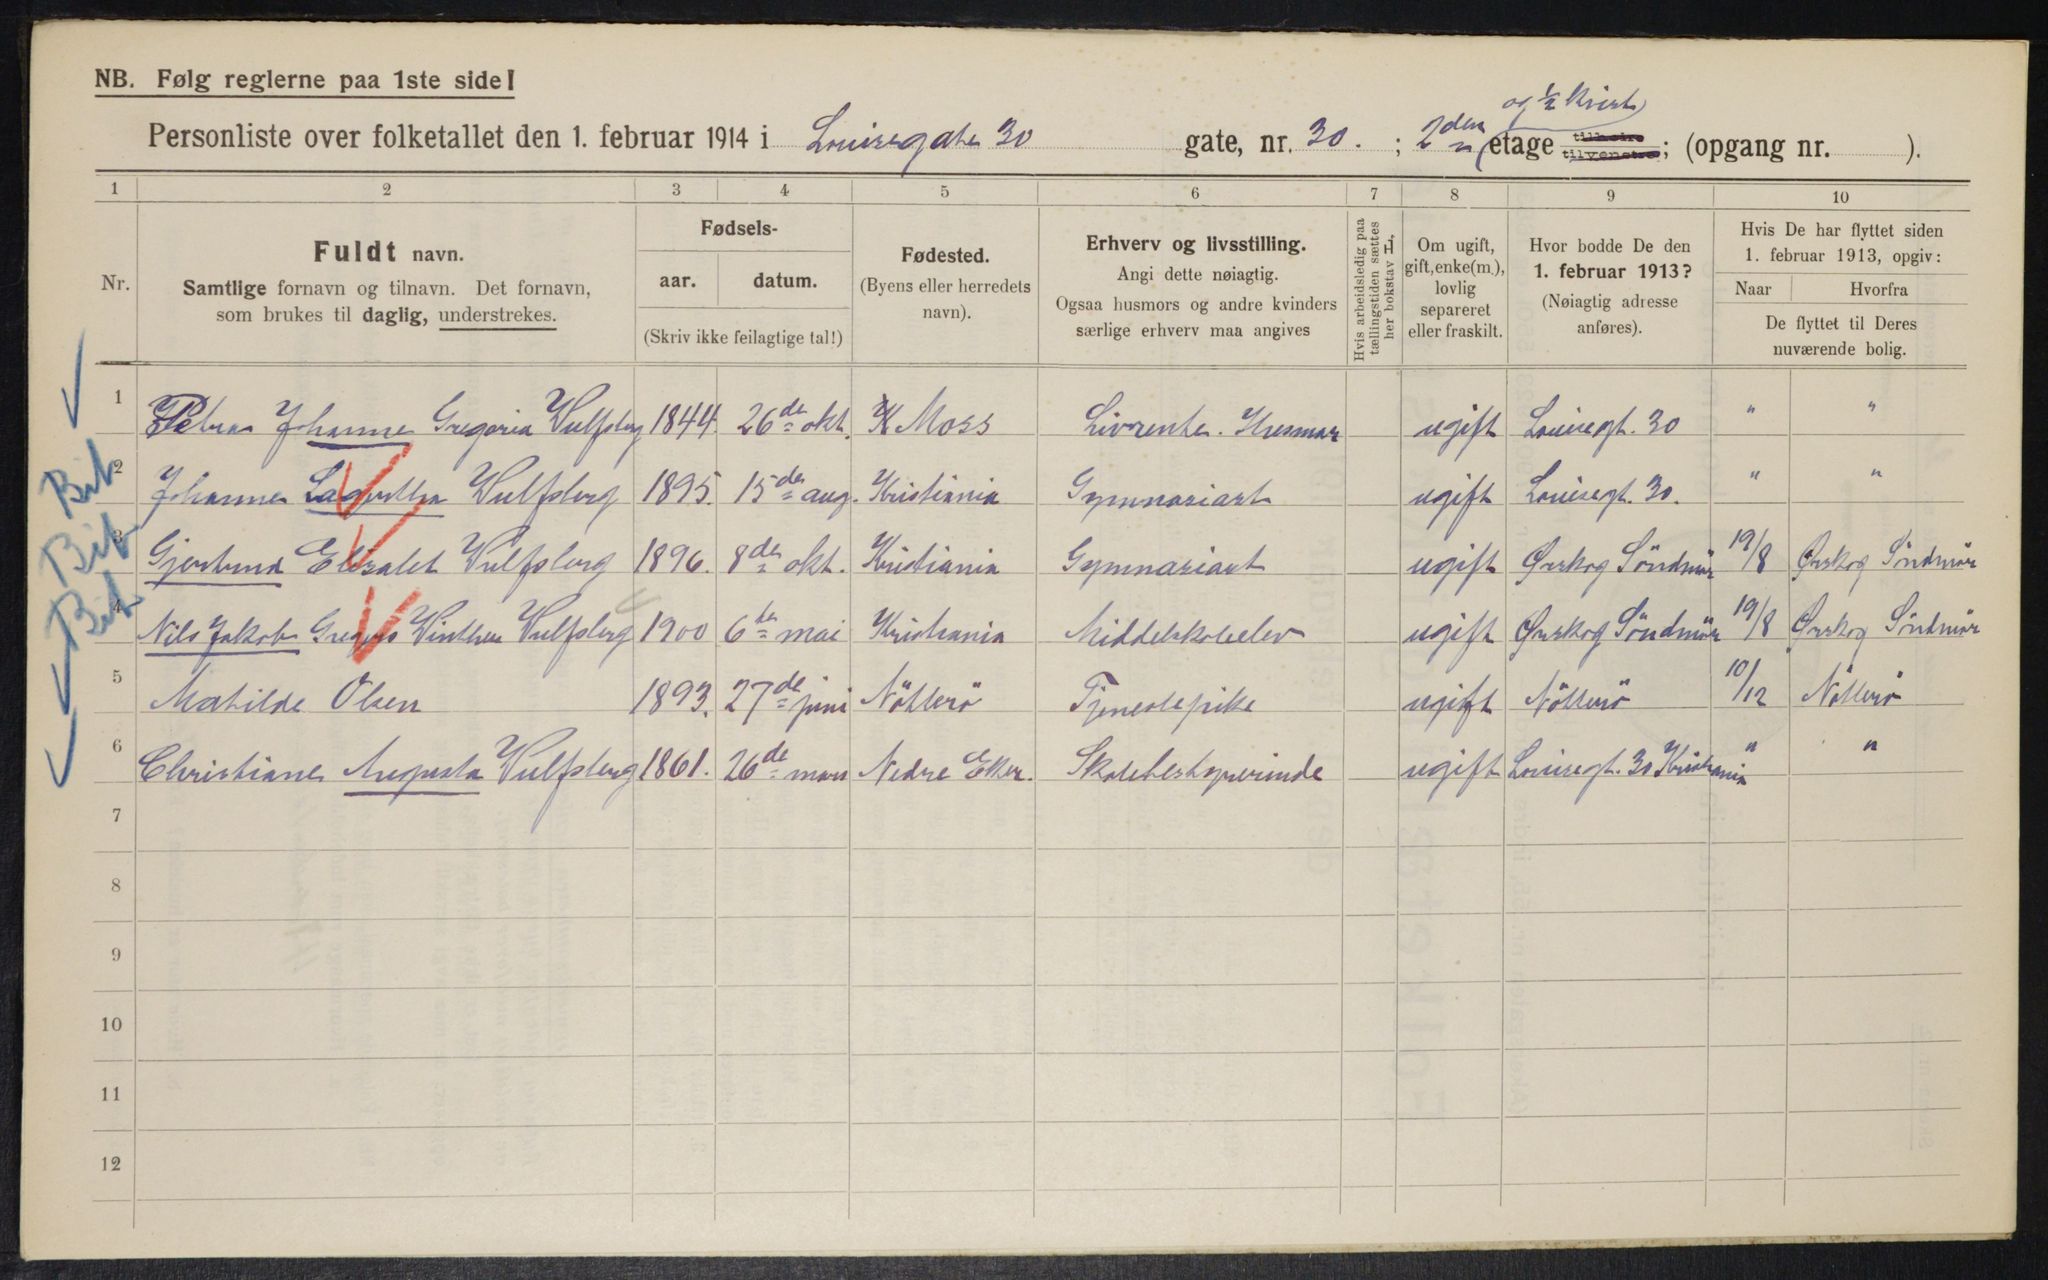 NB. Følg reglerne paa 1ste side!
og ½ Kvist
Personliste over folketallet den 1. februar 1914 i Louisegate 30 gate, nr. 30. ; 2den etage tilhøire tilvenstre; (opgang nr. ).
1 2 3 4 5 6 7 8 9 10
Nr.
Fuldt navn.
Samtlige fornavn og tilnavn. Det fornavn,
som brukes til daglig, understrekes.
Fødsels-
aar. datum.
(Skriv ikke feilagtige tal!)
Fødested.
(Byens eller herredets
navn).
Erhverv og livsstilling.
Angi dette nøiagtig.
Ogsaa husmors og andre kvinders
særlige erhverv maa angives
Hvis arbeidsledig paa
tællingstiden sættes
her bokstav L.
Om ugift,
gift, enke(m.),
lovlig
separeret
eller fraskilt.
Hvor bodde De den
1. februar 1913?
(Nøiagtig adresse
anføres).
Hvis De har flyttet siden
1. februar 1913, opgiv:
Naar Hvorfra
De flyttet til Deres
nuværende bolig.
1 Petra Johanne Gregoria Wulfsberg 1844. 26de okt. Moss Livrente. Husmor ugift Louisegt. 30 " "
Bib
2 Johanne Lagertha Wulfsberg 1895. 15de aug. Kristiania Gymnasiast ugift Louisegt. 30. " "
Bib
3 Gjertrud Elisabet Wulfsberg 1896. 8de okt. Kristiania Gymnasiast ugift Ørskog Söndmör 19/8 Ørskog Söndmör
Bib
4 Nils Jakob Gregers Winther Wulfsberg 1900 6te mai Kristiania Middelskoleelev ugift Ørskog Söndmör 19/8 Ørskog Söndmör
5 Mathilde Olsen 1893. 27de juni Nötterö Tjenestepike ugift Nötterö 10/12 Nötterö
6 Christiane Augusta Wulfsberg 1861. 26de mars Nedre Eker. Skolebestyrerinde ugift Louisegt. 30 Kristiania " "
7
8
9
10
11
12